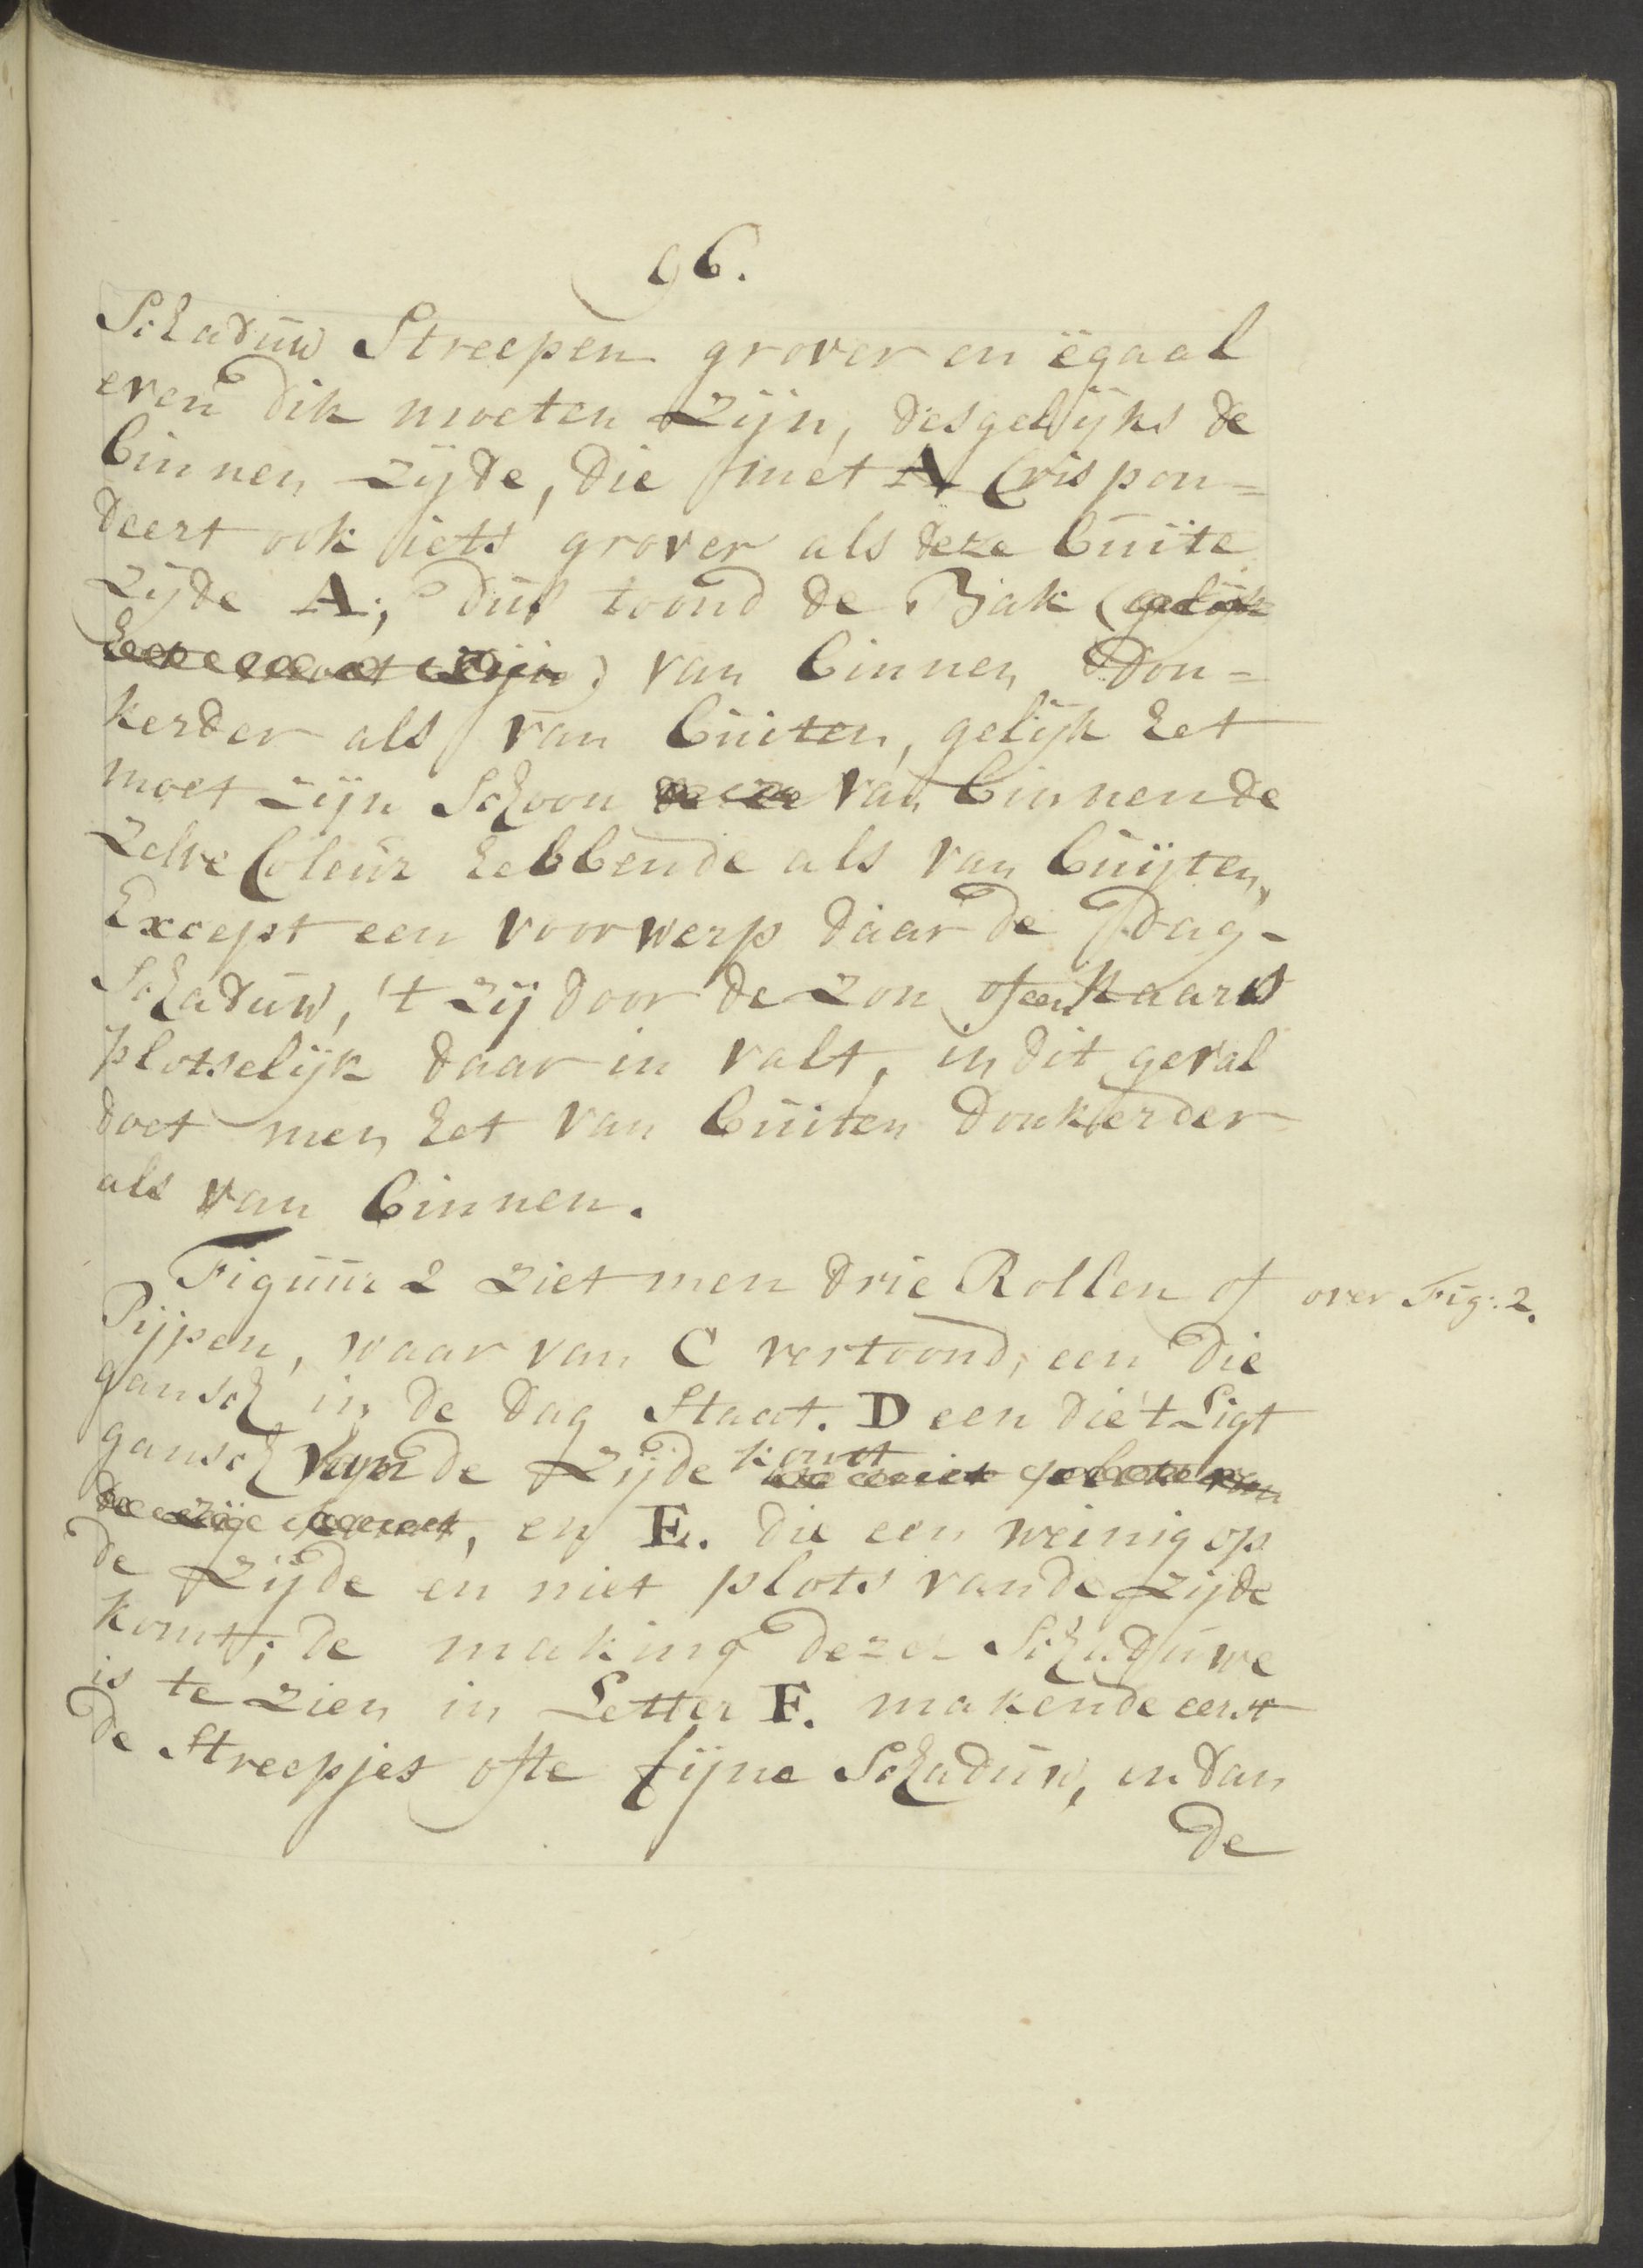 96.
Schaduw Streepen grover en egaal
even dik moeten zijn, desgelijks de
binnen zijde, die met A Crispon=
deert ook iets grover als deze buite
zijde A; dus toond de Bak (gelijk
het moet zijn) van binnen Don=
kerder als van buiten, gelijk het
moet zijn Schoon van binnen de
zelve Coleur hebbende als van buijten,
Except een voorwerp daar de Dag-
Schaduw, 't zij door de zon of een Kaars
plotselijk daar in valt, in dit geval
doet men het van buiten Donkerder
als van binnen.
Figuur 2 ziet men drie Rollen of
over Fig: 2.
Pijpen, waar van C vertoond, een die
gansch in de Dag Staat. D een die 't Ligt
gansch van de Zijde komt
, en E. die een weinig op
de Zijde en niet plots van de zijde
komt; de making dezer Schaduwe
is te zien in Letter F. makende eerst
de Streepjes ofte fijne Schaduw, en dan
de